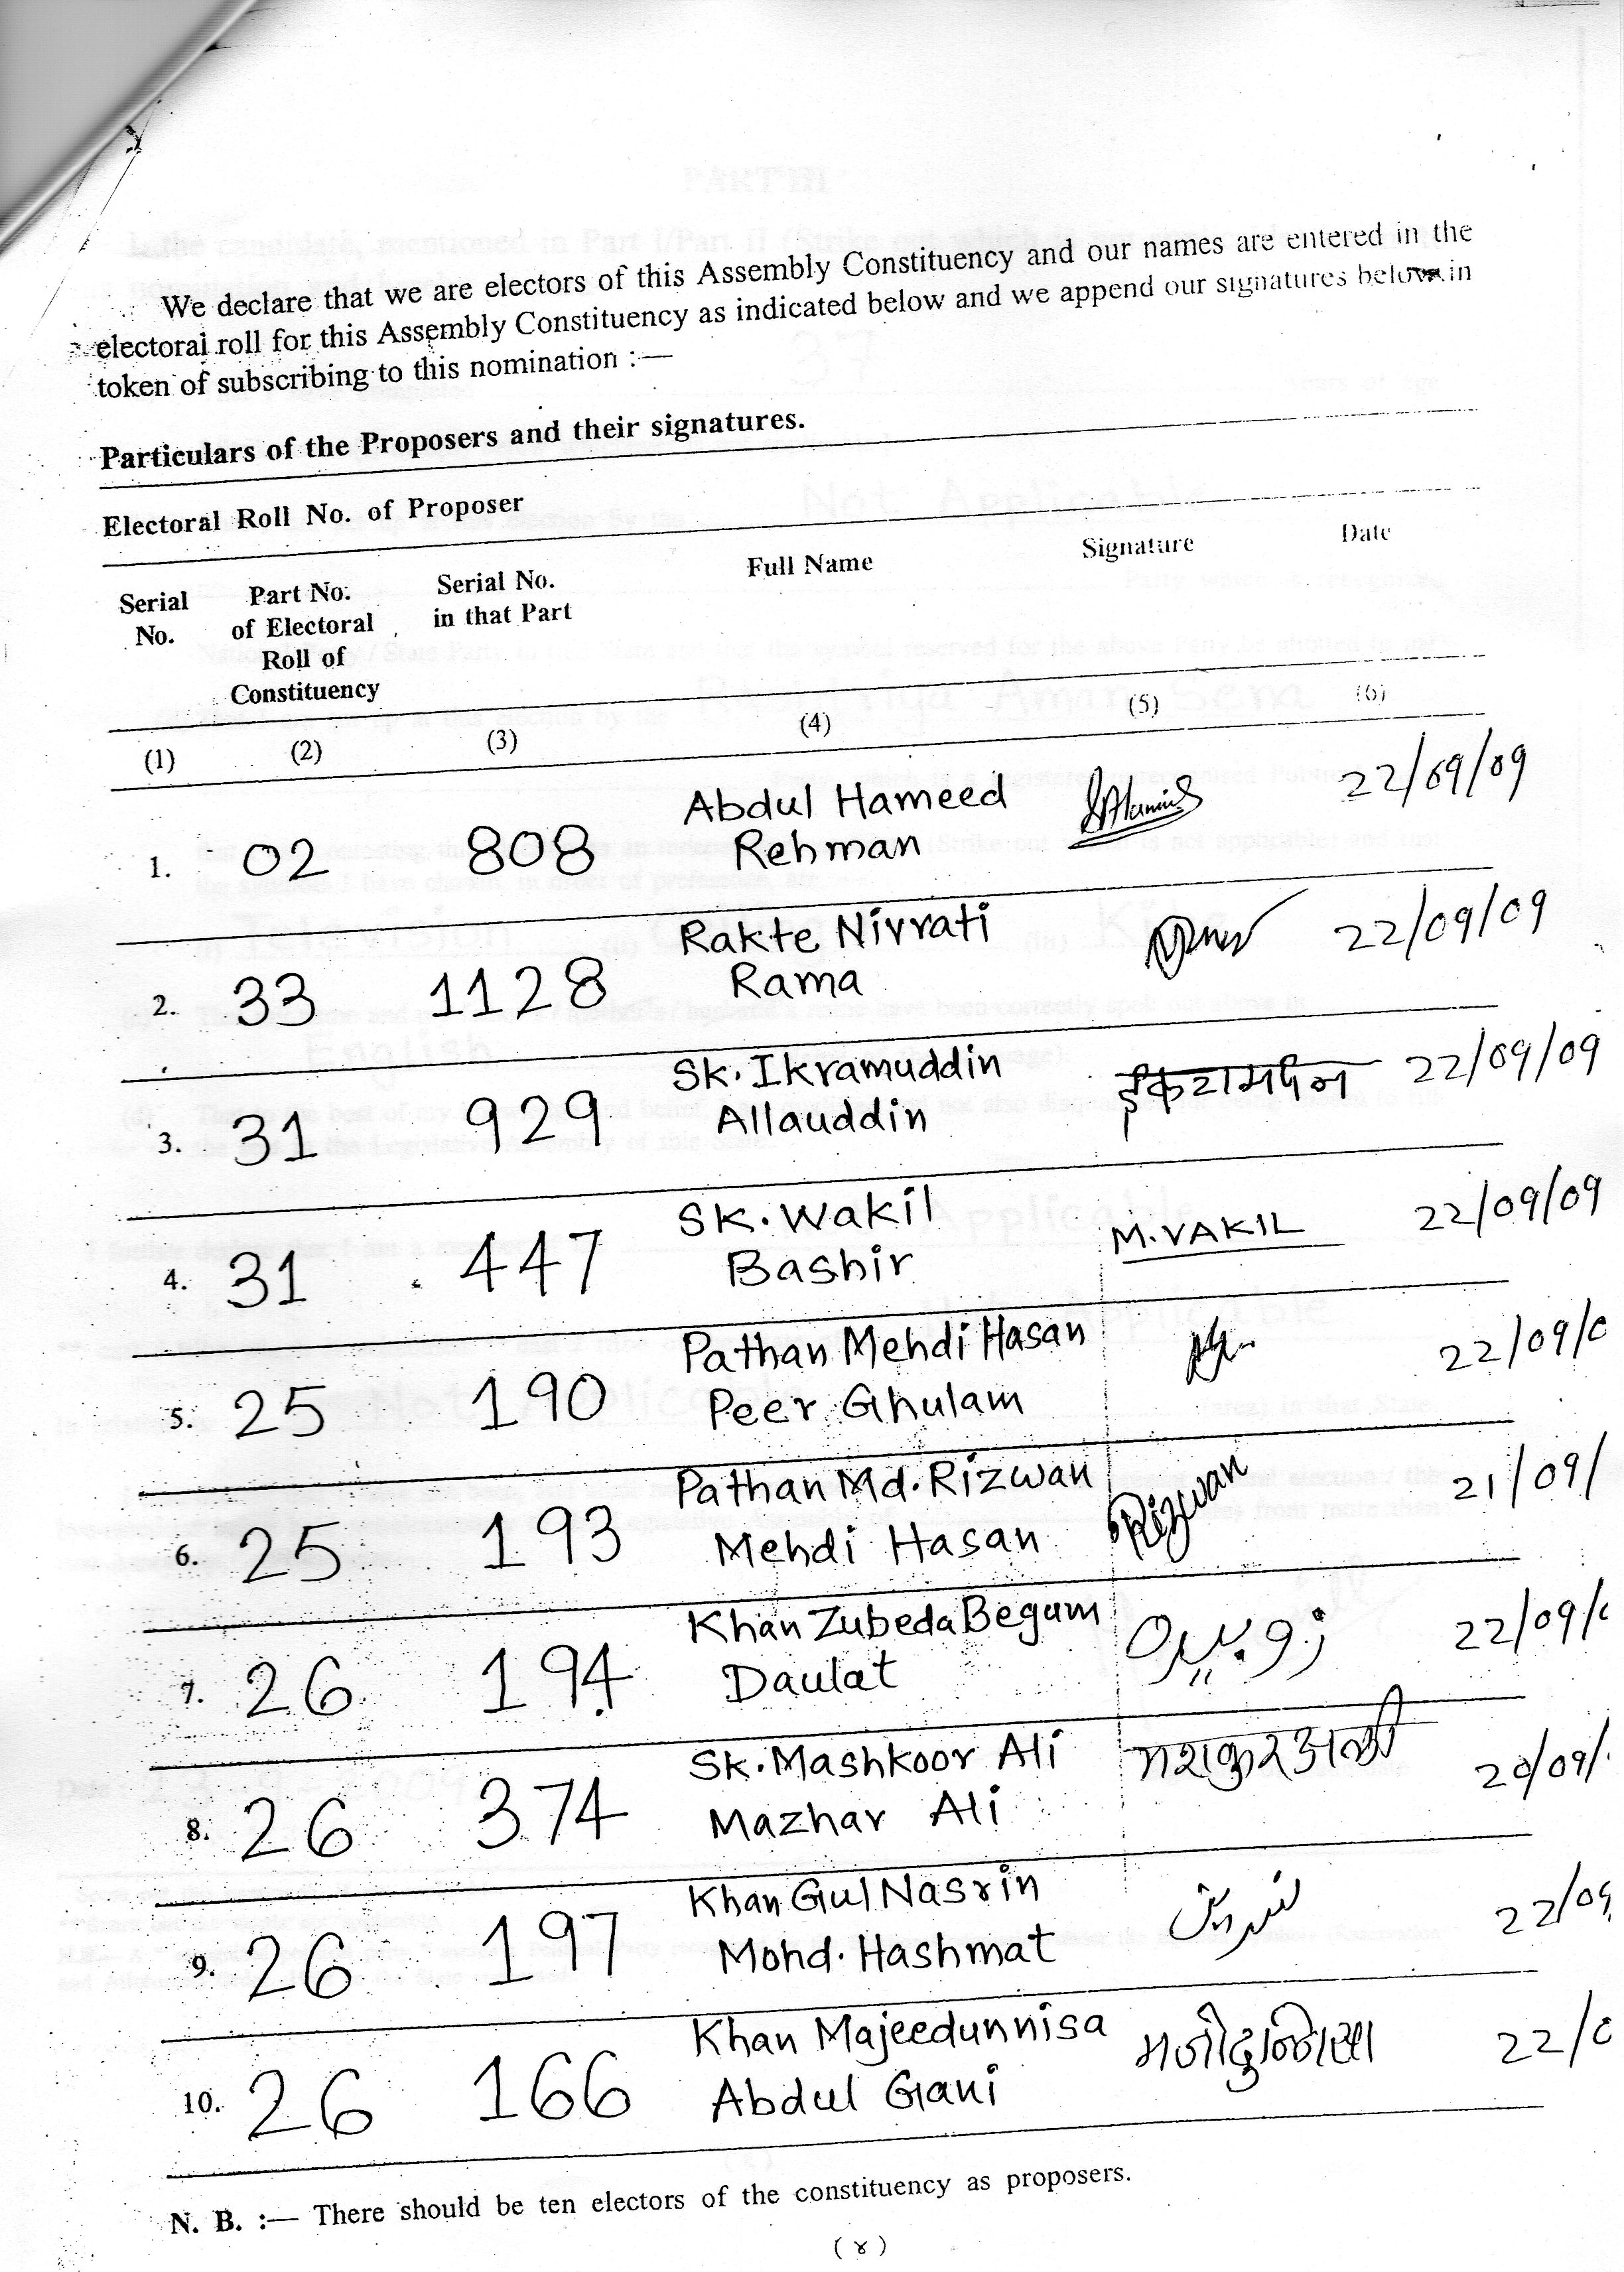 We declare that we are electors of this Assembly Constituency and our names are entered in the
electoral roll for this Assembly Constituency as indicated below and we append our signatures below in
token of subscribing to this nomination :—
Particulars of the Proposers and their signatures.
Electoral Roll No. of Proposer
Serial No. Part No. of Electoral Roll of Constituency Serial No. in that Part Full Name Signature Date
(1) (2) (3) (4) (5) (6)
Abdul Hameed 22/09/09
1. 02 808 Rehman
Rakte Nivrati 22/09/09
2. 33 1128 Rama
Sk. Ikramuddin 22/09/09
3. 31 929 Allauddin
Sk. Wakil M. VAKIL 22/09/09
4. 31 447 Bashir
Pathan Mehdi Hasan 22/09/0
5. 25 190 Peer Ghulam
Pathan Md. Rizwan Rizwan 21/09/
6. 25 193 Mehdi Hasan
Khan Zubeda Begum زوبیدہ 22/09/
7. 26 194 Daulat
Sk. Mashkoor Ali मशकुर अली 20/09/
8. 26 374 Mazhar Ali
Khan Gul Nasrin نسرین 22/09
9. 26 197 Mohd. Hashmat
Khan Majeedunnisa मजीदुन्निसा 22/0
10. 26 166 Abdul Gani
N. B. :— There should be ten electors of the constituency as proposers.
(४)